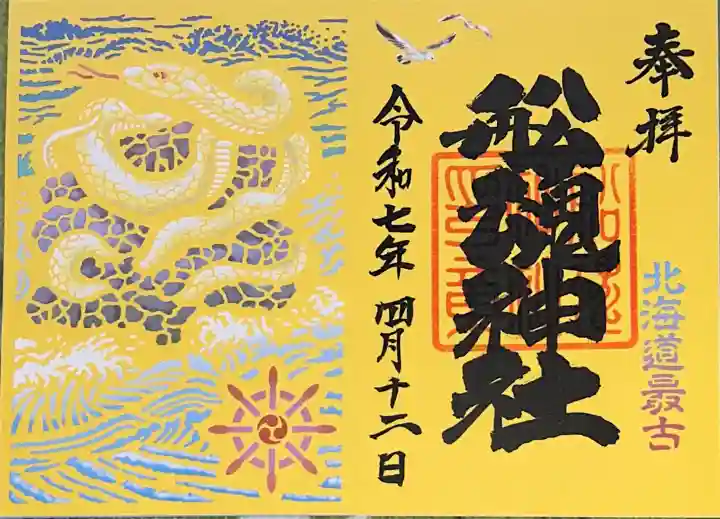 奉拝
北海道最古
船魂神社
令和七年 四月十二日